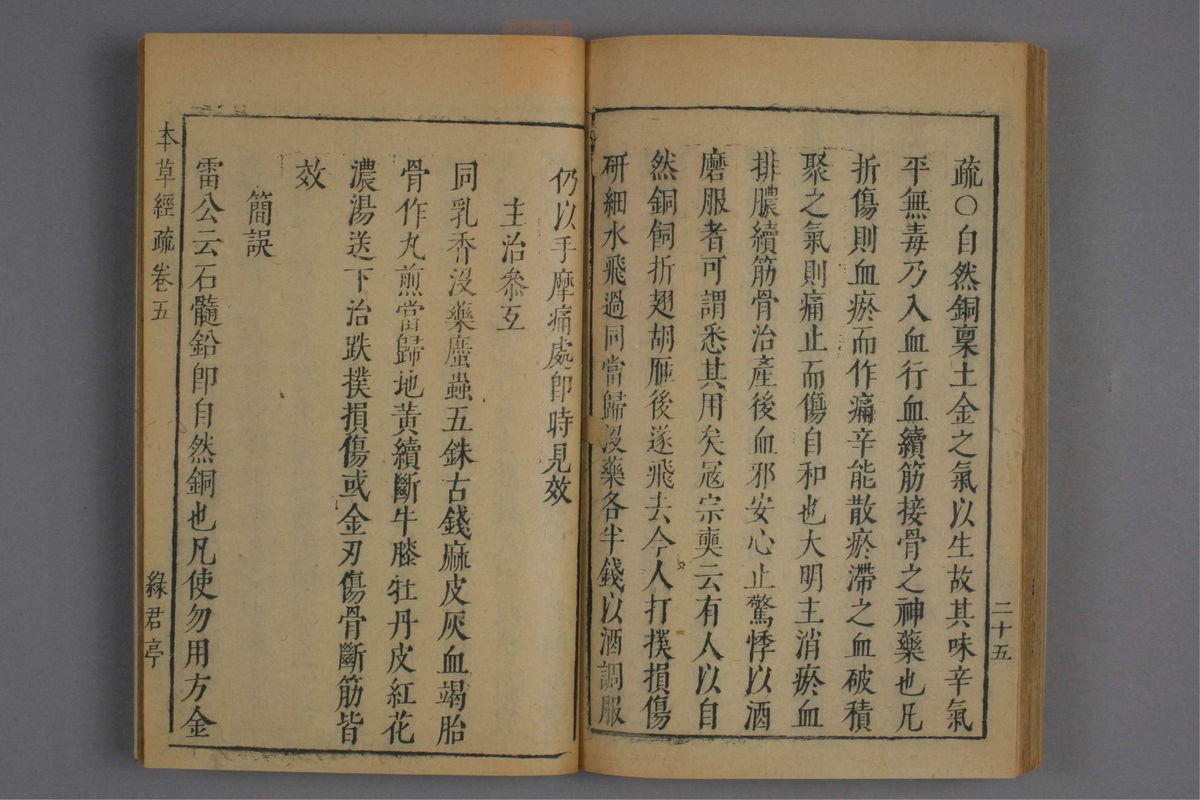 疏○自然銅稟土金之氣以生故其味辛氣
平無毒乃入血行血續筋接骨之神藥也凡
折傷則血瘀而作痛辛能散瘀滯之血破積
聚之氣則痛止而傷自和也大明主消瘀血
排膿續筋骨治產後血邪安心止驚悸以酒
磨服者可謂悉其用矣冦宗奭云有人以自
然銅飼折翅胡鴈後遂飛去今人打撲損傷
研細水飛過同當歸沒藥各半錢以酒調服
二十五
仍以手摩痛處卽時見效
主治叅互
同乳香沒藥䗪蟲五銖古錢麻皮灰血竭胎
骨作丸煎當歸地黃續斷牛膝牡丹皮紅花
濃湯送下治跌撲損傷或金刃傷骨斷筋皆
效
簡誤
雷公云石髓鉛卽自然銅也凡使勿用方金
本草經疏卷五
綠君亭